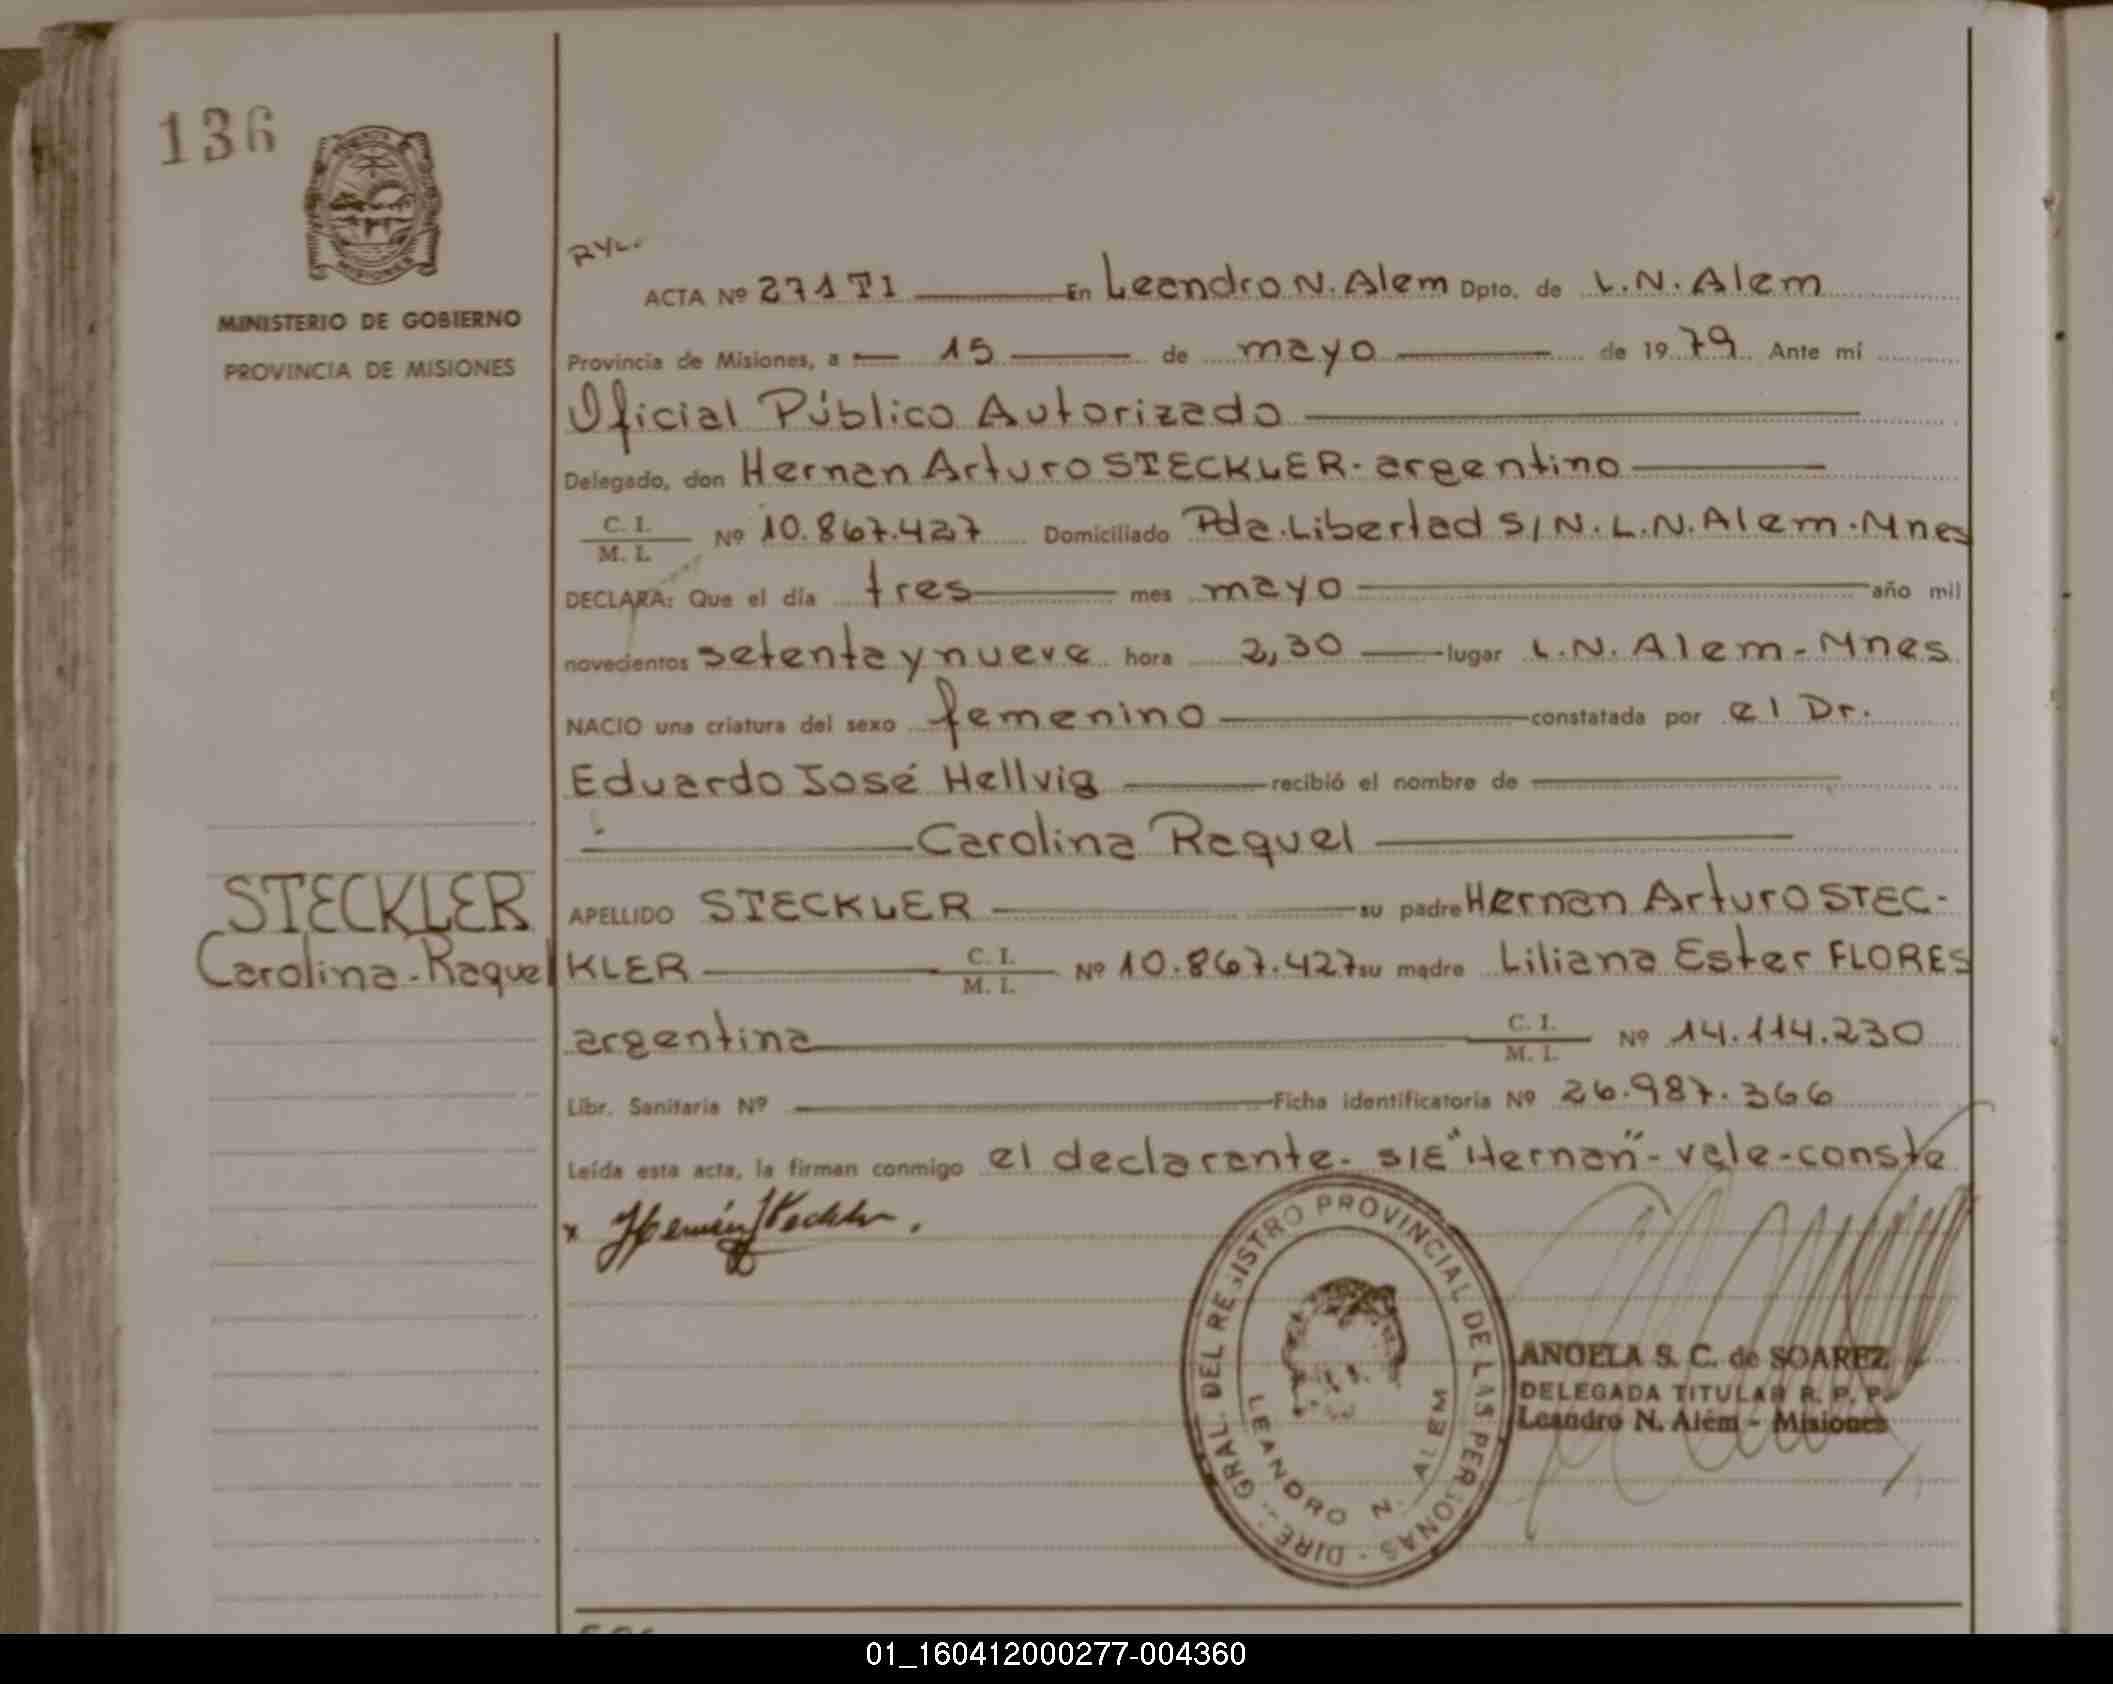 136
MINISTERIO DE GOBIERNO
PROVINCIA DE MISIONES
STECKLER
Carolina-Raquel
RYL.
ACTA Nº 271 TI En Leandro N. Alem Dpto. de L.N. Alem
Provincia de Misiones, a 15 de mayo de 1979 Ante mí
Oficial Público Autorizado
Delegado, don Hernan Arturo STECKLER - argentino
C. I. / M. I. Nº 10.867.427 Domiciliado Pda. Libertad S/N. L.N. Alem - Mnes
DECLARA: Que el día tres mes mayo año mil
novecientos setenta y nueve hora 2,30 lugar L.N. Alem - Mnes
NACIO una criatura del sexo femenino constatada por el Dr.
Eduardo José Hellvig recibió el nombre de
Carolina Raquel
APELLIDO STECKLER su padre Hernan Arturo STEC-
KLER C. I. / M. I. Nº 10.867.427 su madre Liliana Ester FLORES
argentina C. I. / M. I. Nº 14.114.230
Libr. Sanitaria Nº Ficha identificatoria Nº 26.987.366
Leída esta acta, la firman conmigo el declarante - S/E "Hernan" - vale - conste
x Hernán Steckler.
DIRE. GRAL. DEL REGISTRO PROVINCIAL DE LAS PERSONAS
LEANDRO N. ALEM
ANGELA S. C. de SOAREZ
DELEGADA TITULAR R. P. P.
Leandro N. Além - Misiones
01_160412000277-004360